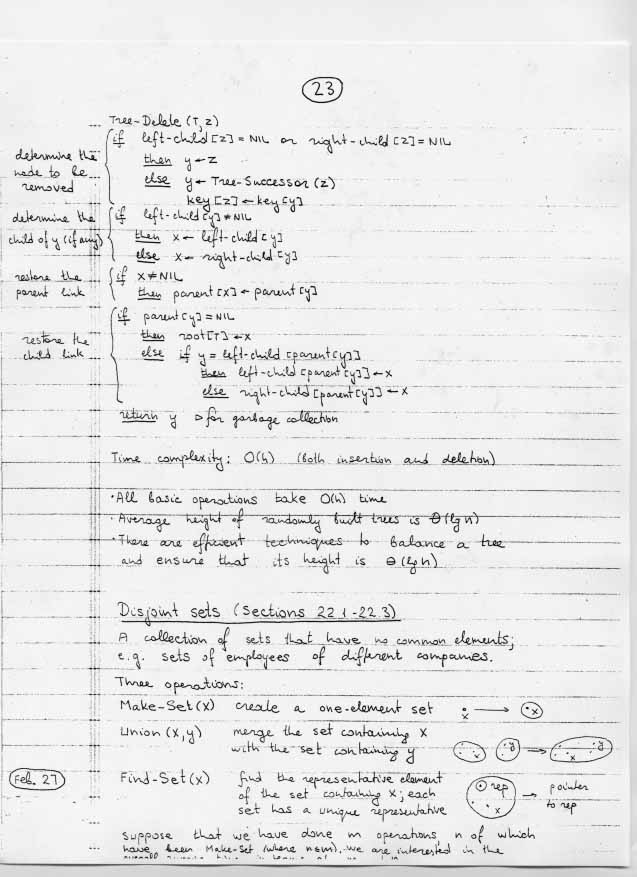 23
Tree-Delete (T, z)
if left-child [z] = NIL or right-child [z] = NIL
determine the
node to be
removed
then y ← z
else y ← Tree-Successor (z)
key [z] ← key [y]
determine the
child of y (if any)
if left-child [y] ≠ NIL
then x ← left-child [y]
else x ← right-child [y]
restore the
parent link
if x ≠ NIL
then parent [x] ← parent [y]
restore the
child link
if parent [y] = NIL
then root [T] ← x
else if y = left-child [parent [y]]
then left-child [parent [y]] ← x
else right-child [parent [y]] ← x
return y ▷ for garbage collection
Time complexity: O(h) (both insertion and deletion)
· All basic operations take O(h) time
· Average height of randomly built trees is Θ(lg n)
· There are efficient techniques to balance a tree
and ensure that its height is Θ(lg n)
Disjoint sets (Sections 22.1-22.3)
A collection of sets that have no common elements;
e.g. sets of employees of different companies.
Three operations:
Make-Set (x) create a one-element set
x → x
Union (x, y) merge the set containing x
with the set containing y
x y → x y
Feb. 27
Find-Set (x) find the representative element
of the set containing x; each
set has a unique representative
rep x → pointer
to rep
suppose that we have done m operations, n of which
have been Make-Set (where n≤m). We are interested in the